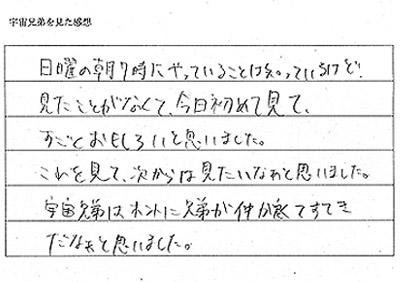 宇宙兄弟を見た感想
日曜の朝7時にやっていることは知っているけど!
見たことがなくて、今日初めて見て、
すごくおもしろいと思いました。
これを見て、次からは見たいなぁと思いました。
宇宙兄弟はホントに兄弟が仲が良くてすてき
だなぁと思いました。